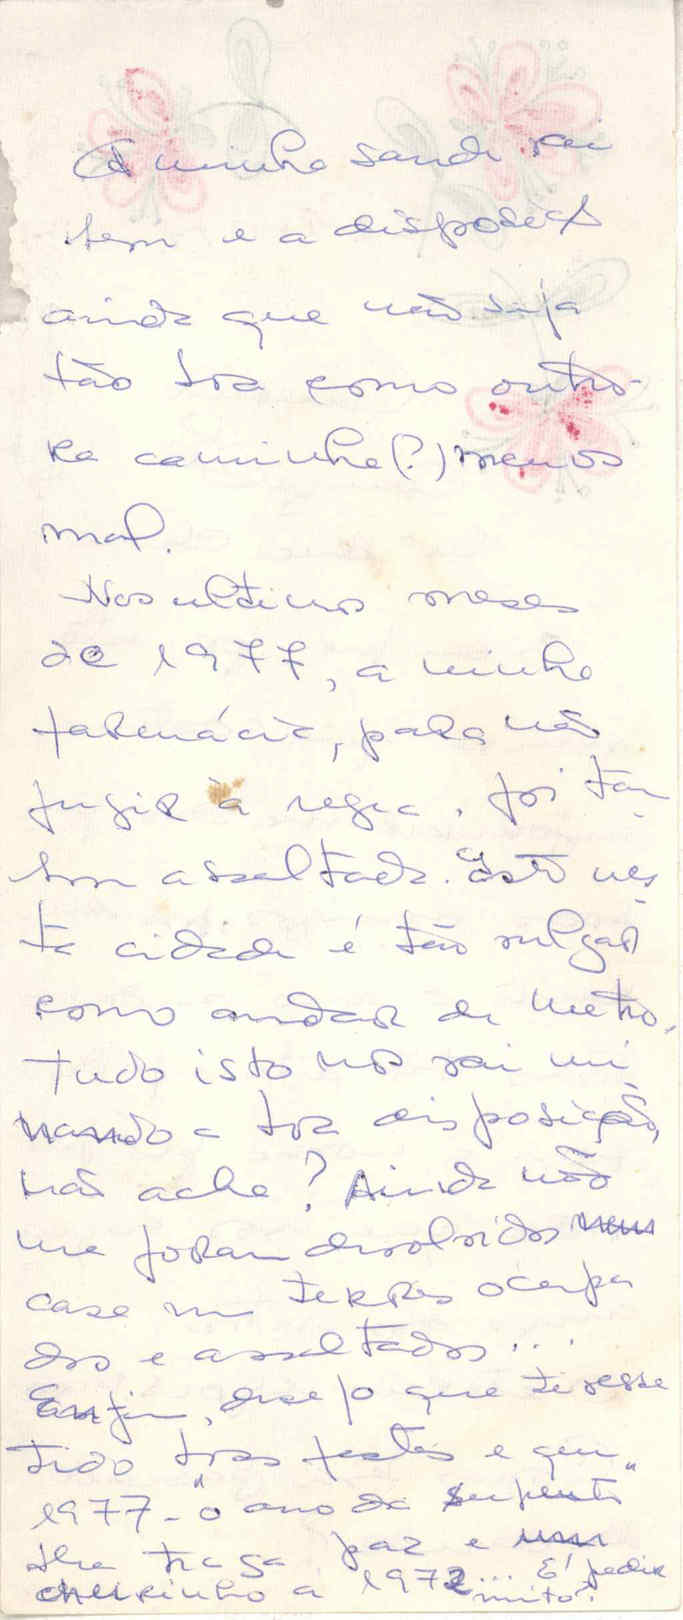 A minha saude vai
bem e a disposição
ainda que não seja
tão boa como outro-
ra caminha (?) menos
mal.
Nos ultimos meses
de 1977, a minha
farmácia, para não
fugir à regra, foi tam
bem assaltada. Isto nes
ta cidade é tão vulgar
como andar de metro,
tudo isto nos vai mi
nando a boa disposição,
não acha? Ainda não
me foram devolvidos
casa nem terras ocupa
dos e assaltados...
Enfim, desejo que tivesse
tido boas festas e que
1977 - "o ano da serpente"
lhe traga paz e um
cheirinho a 1972... É pedir
muito?